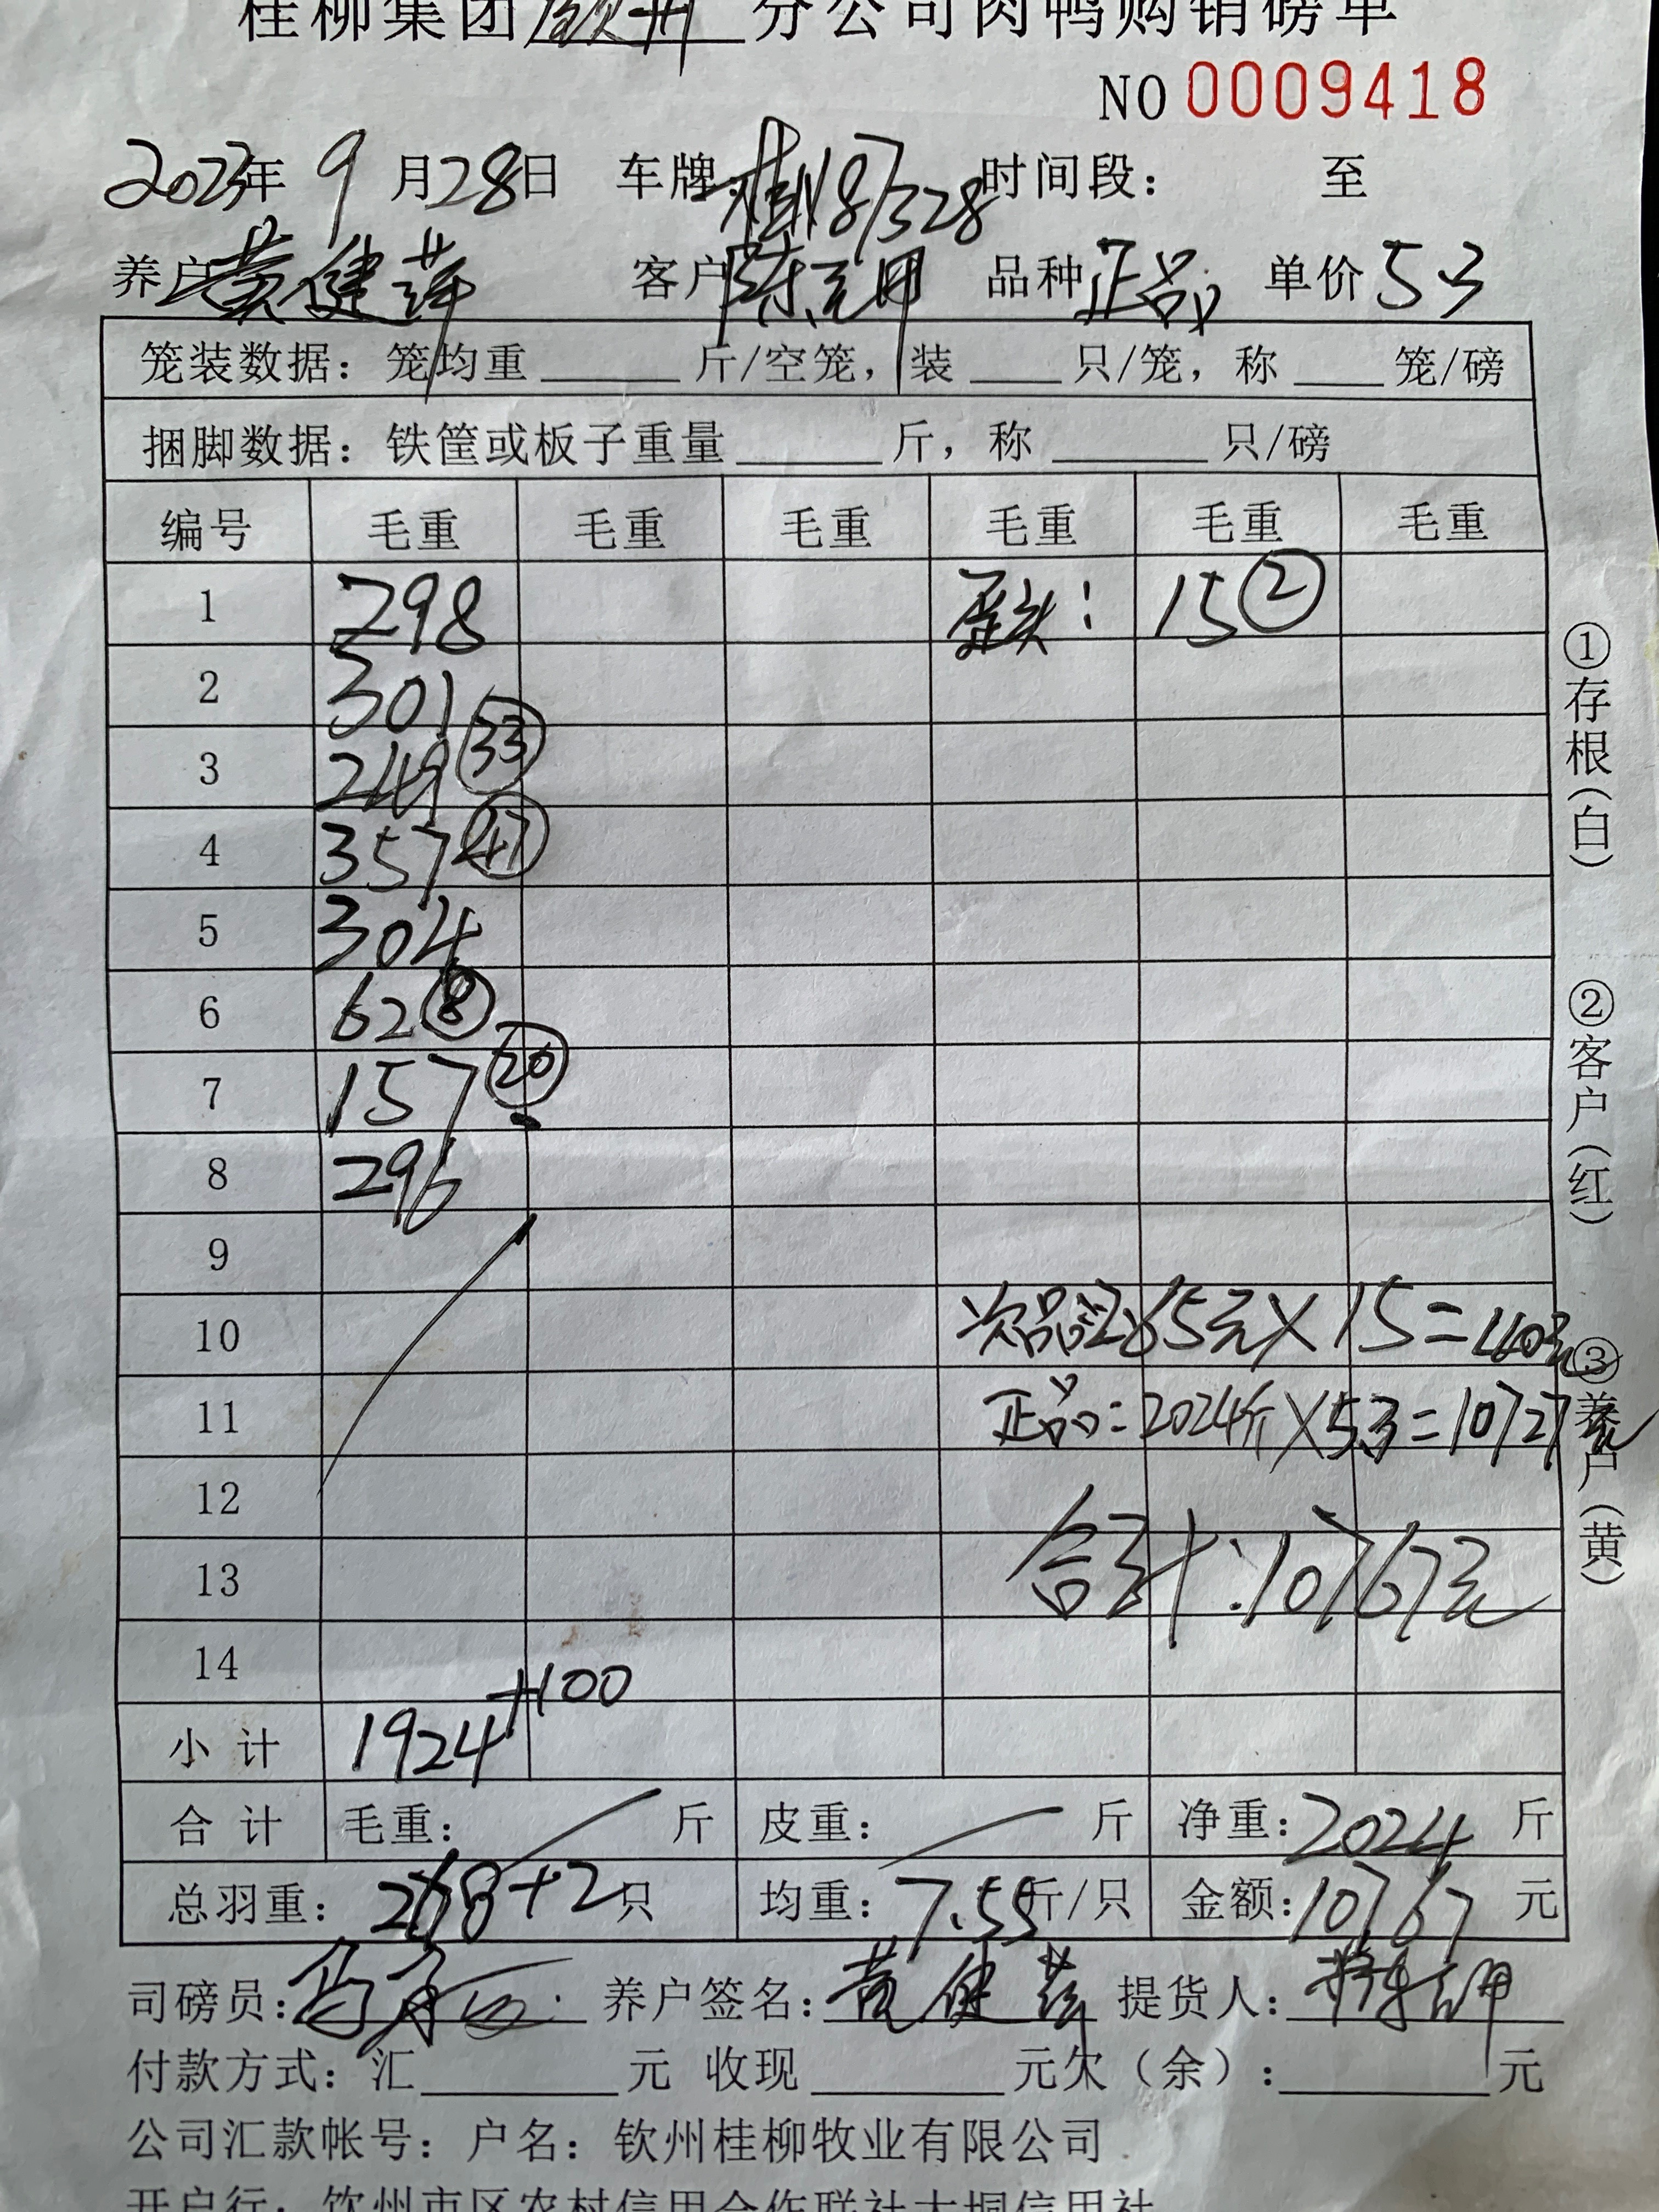 桂柳集团钦州分公司肉鸭购销磅单
NO 0009418
2023年 9月28日 车牌: 时间段: 至
养户 黄健萍 客户 陈元甲 品种 正品 单价 5.3
笼装数据: 笼均重______斤/空笼, 装____只/笼, 称____笼/磅
捆脚数据: 铁筐或板子重量______斤, 称______只/磅
编号 毛重 毛重 毛重 毛重 毛重 毛重
1 298 歪头: 15②
2 301
3 249 ㉝
4 357 ㊼
5 304
6 62 ⑧
7 157 ⑳
8 296
9
10 次品: 2.65元×15=40元
11 正品: 2024斤×5.3=10727元
12
13 合计: 10767元
14
小计 1924+100
合计 毛重: 斤 皮重: 斤 净重: 2024 斤
总羽重: 268+2只 均重: 7.55斤/只 金额: 10767 元
司磅员: 养户签名: 黄健萍 提货人:
付款方式: 汇______元 收现______元欠(余):______元
公司汇款帐号: 户名: 钦州桂柳牧业有限公司
开户行: 钦州市区农村信用合作联社大垌信用社
①存根(白)
②客户(红)
③养户(黄)